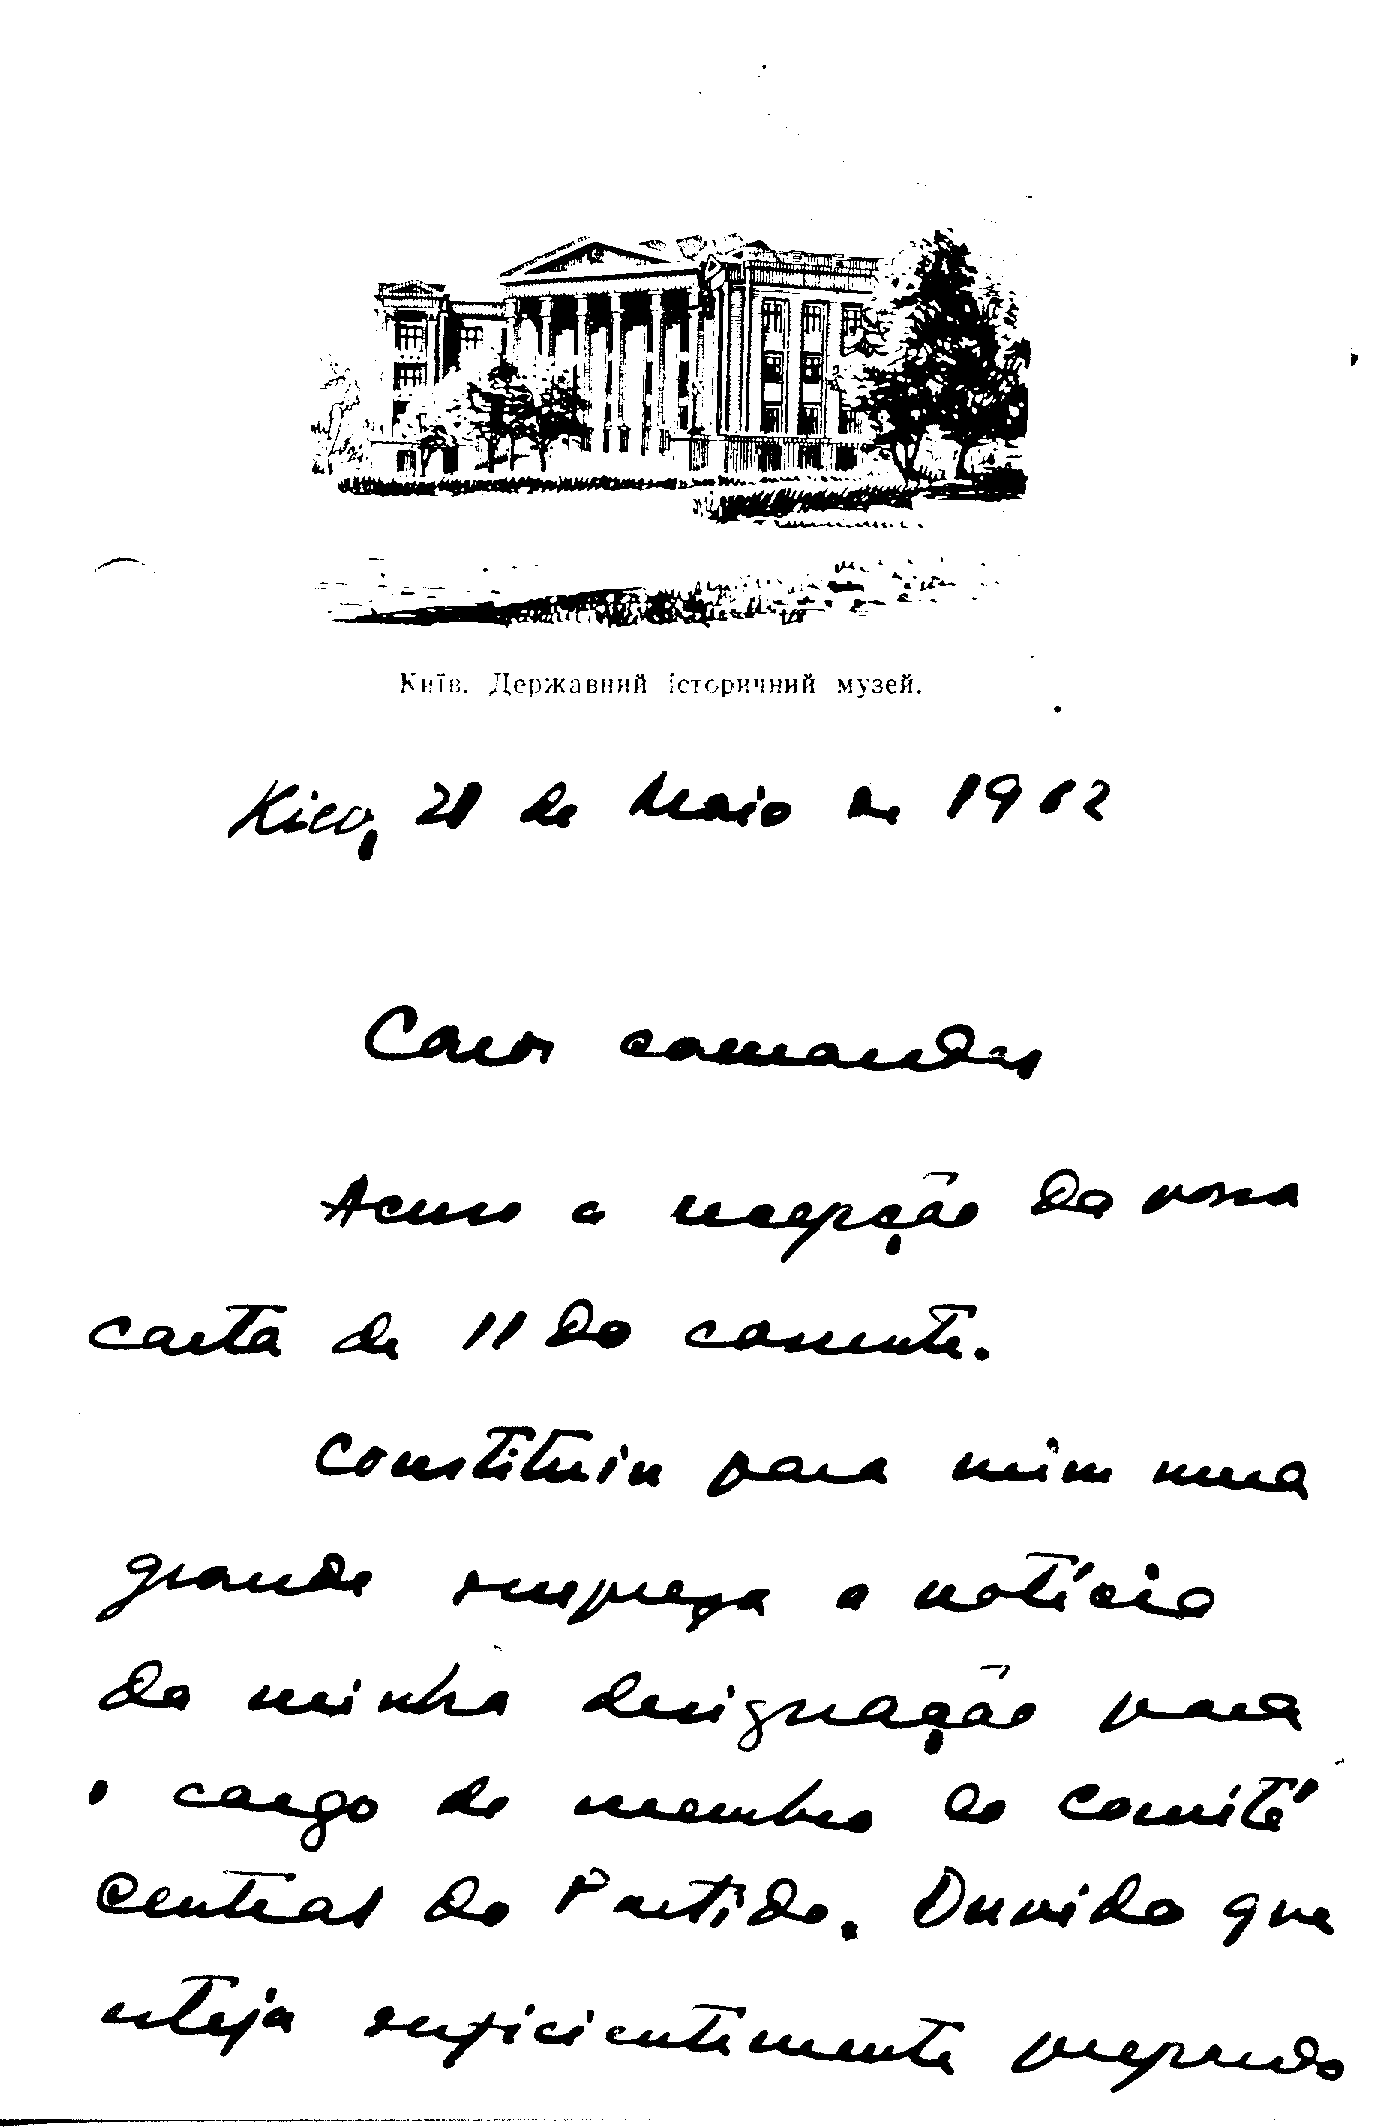 Київ. Державний історичний музей.
Kiev, 21 de Maio de 1962
Caros camaradas
Acuso a recepção da vossa
carta de 11 do corrente.
Constituiu para mim uma
grande surpreza a notícia
da minha designação para
o cargo de membro do Comité
central do Partido. Duvido que
esteja suficientemente